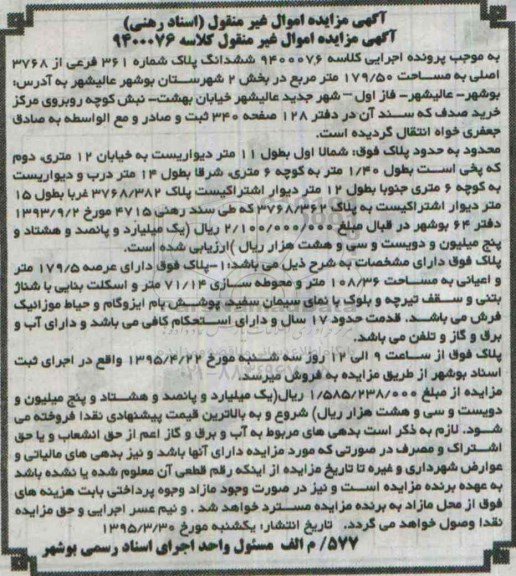 آگهی مزایده اموال غیر منقول (اسناد رهنی)
آگهی مزایده اموال غیر منقول کلاسه ۹۴۰۰۰۷۶
به موجب پرونده اجرایی کلاسه ۹۴۰۰۰۷۶ ششدانگ پلاک شماره ۳۶۱ فرعی از ۳۷۶۸
اصلی به مساحت ۱۷۹/۵۰ متر مربع در بخش ۲ شهرستان بوشهر عالیشهر به آدرس:
بوشهر- عالیشهر- فاز اول – شهر جدید عالیشهر خیابان بهشت- نبش کوچه روبروی مرکز
خرید صدف که سند آن در دفتر ۱۲۸ صفحه ۳۴۰ ثبت و صادر و مع الواسطه به صادق
جعفری خواه انتقال گردیده است.
محدود به حدود پلاک فوق: شمالا اول بطول ۱۱ متر دیواریست به خیابان ۱۲ متری، دوم
که پخی است بطول ۱/۴۰ متر به کوچه ۶ متری، شرقا بطول ۱۴ متر درب و دیواریست
به کوچه ۶ متری جنوبا بطول ۱۲ متر دیوار اشتراکیست پلاک ۳۷۶۸/۳۸۲ غربا بطول ۱۵
متر دیوار اشتراکیست به پلاک ۳۷۶۸/۳۶۲ که طی سند رهنی ۴۷۱۵ مورخ ۱۳۹۳/۹/۲
دفتر ۶۴ بوشهر در قبال مبلغ ۲/۱۰۰/۰۰۰/۰۰۰ ریال (یک میلیارد و پانصد و هشتاد و
پنج میلیون و دویست و سی و هشت هزار ریال )ارزیابی شده است.
پلاک فوق دارای مشخصات به شرح ذیل می باشد:۱-پلاک فوق دارای عرصه ۱۷۹/۵ متر
و اعیانی به مساحت ۱۰۸/۳۶ متر و محوطه سازی ۷۱/۱۴ متر و اسکلت بنایی با شناژ
بتنی و سقف تیرچه و بلوک با نمای سیمان سفید، پوشش بام ایزوگام و حیاط موزائیک
فرش می باشد. قدمت حدود ۱۷ سال و دارای استحکام کافی می باشد و دارای آب و
برق و گاز و تلفن می باشد.
پلاک فوق از ساعت ۹ الی ۱۲ روز سه شنبه مورخ ۱۳۹۵/۴/۲۲ واقع در اجرای ثبت
اسناد بوشهر از طریق مزایده به فروش میرسد.
مزایده از مبلغ ۱/۵۸۵/۲۳۸/۰۰۰ ریال(یک میلیارد و پانصد و هشتاد و پنج میلیون و
دویست و سی و هشت هزار ریال) شروع و به بالاترین قیمت پیشنهادی نقدا فروخته می
شود. لازم به ذکر است بدهی های مربوط به آب و برق و گاز اعم از حق انشعاب و یا حق
اشتراک و مصرف در صورتی که مورد مزایده دارای آنها باشد و نیز بدهی های مالیاتی و
عوارض شهرداری و غیره تا تاریخ مزایده از اینکه رقم قطعی آن معلوم شده یا نشده باشد
به عهده برنده مزایده است و نیز در صورت وجود مازاد وجوه پرداختی بابت هزینه های
فوق از محل مازاد به برنده مزایده مسترد خواهد شد . و نیم عسر اجرایی و حق مزایده
نقدا وصول خواهد می گردد. تاریخ انتشار: یکشنبه مورخ ۱۳۹۵/۳/۳۰
۵۷۷/ م الف مسئول واحد اجرای اسناد رسمی بوشهر